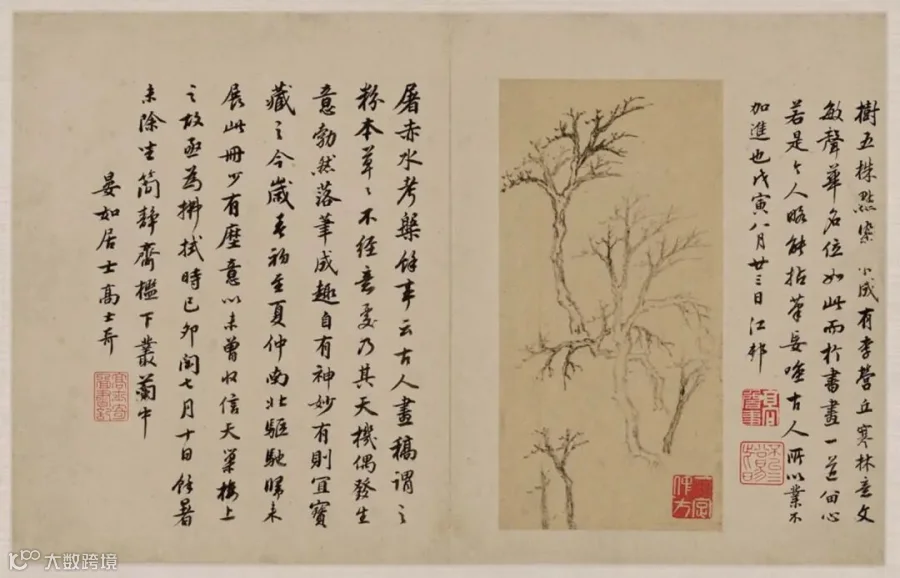 樹五株點染小成有李營丘寒林意文
敏聲華名位如此而於書畫一道留心
若是今人略能拈筆妄古人所以業不
加進也戊寅八月廿三日江邨
屠赤水考槃餘事云古人畫稿謂之
粉本草〻不經意處乃其天機偶發生
意勃然落筆成趣自有神妙有則宜寶
藏之今歲春初至夏仲南北驅馳歸來
展此冊少有塵意以未曾收信天巢樓上
之故亟為拂拭時己卯閏七月十日餘暑
未除坐簡靜齋檻下叢蘭中
晏如居士高士奇
大数跨境